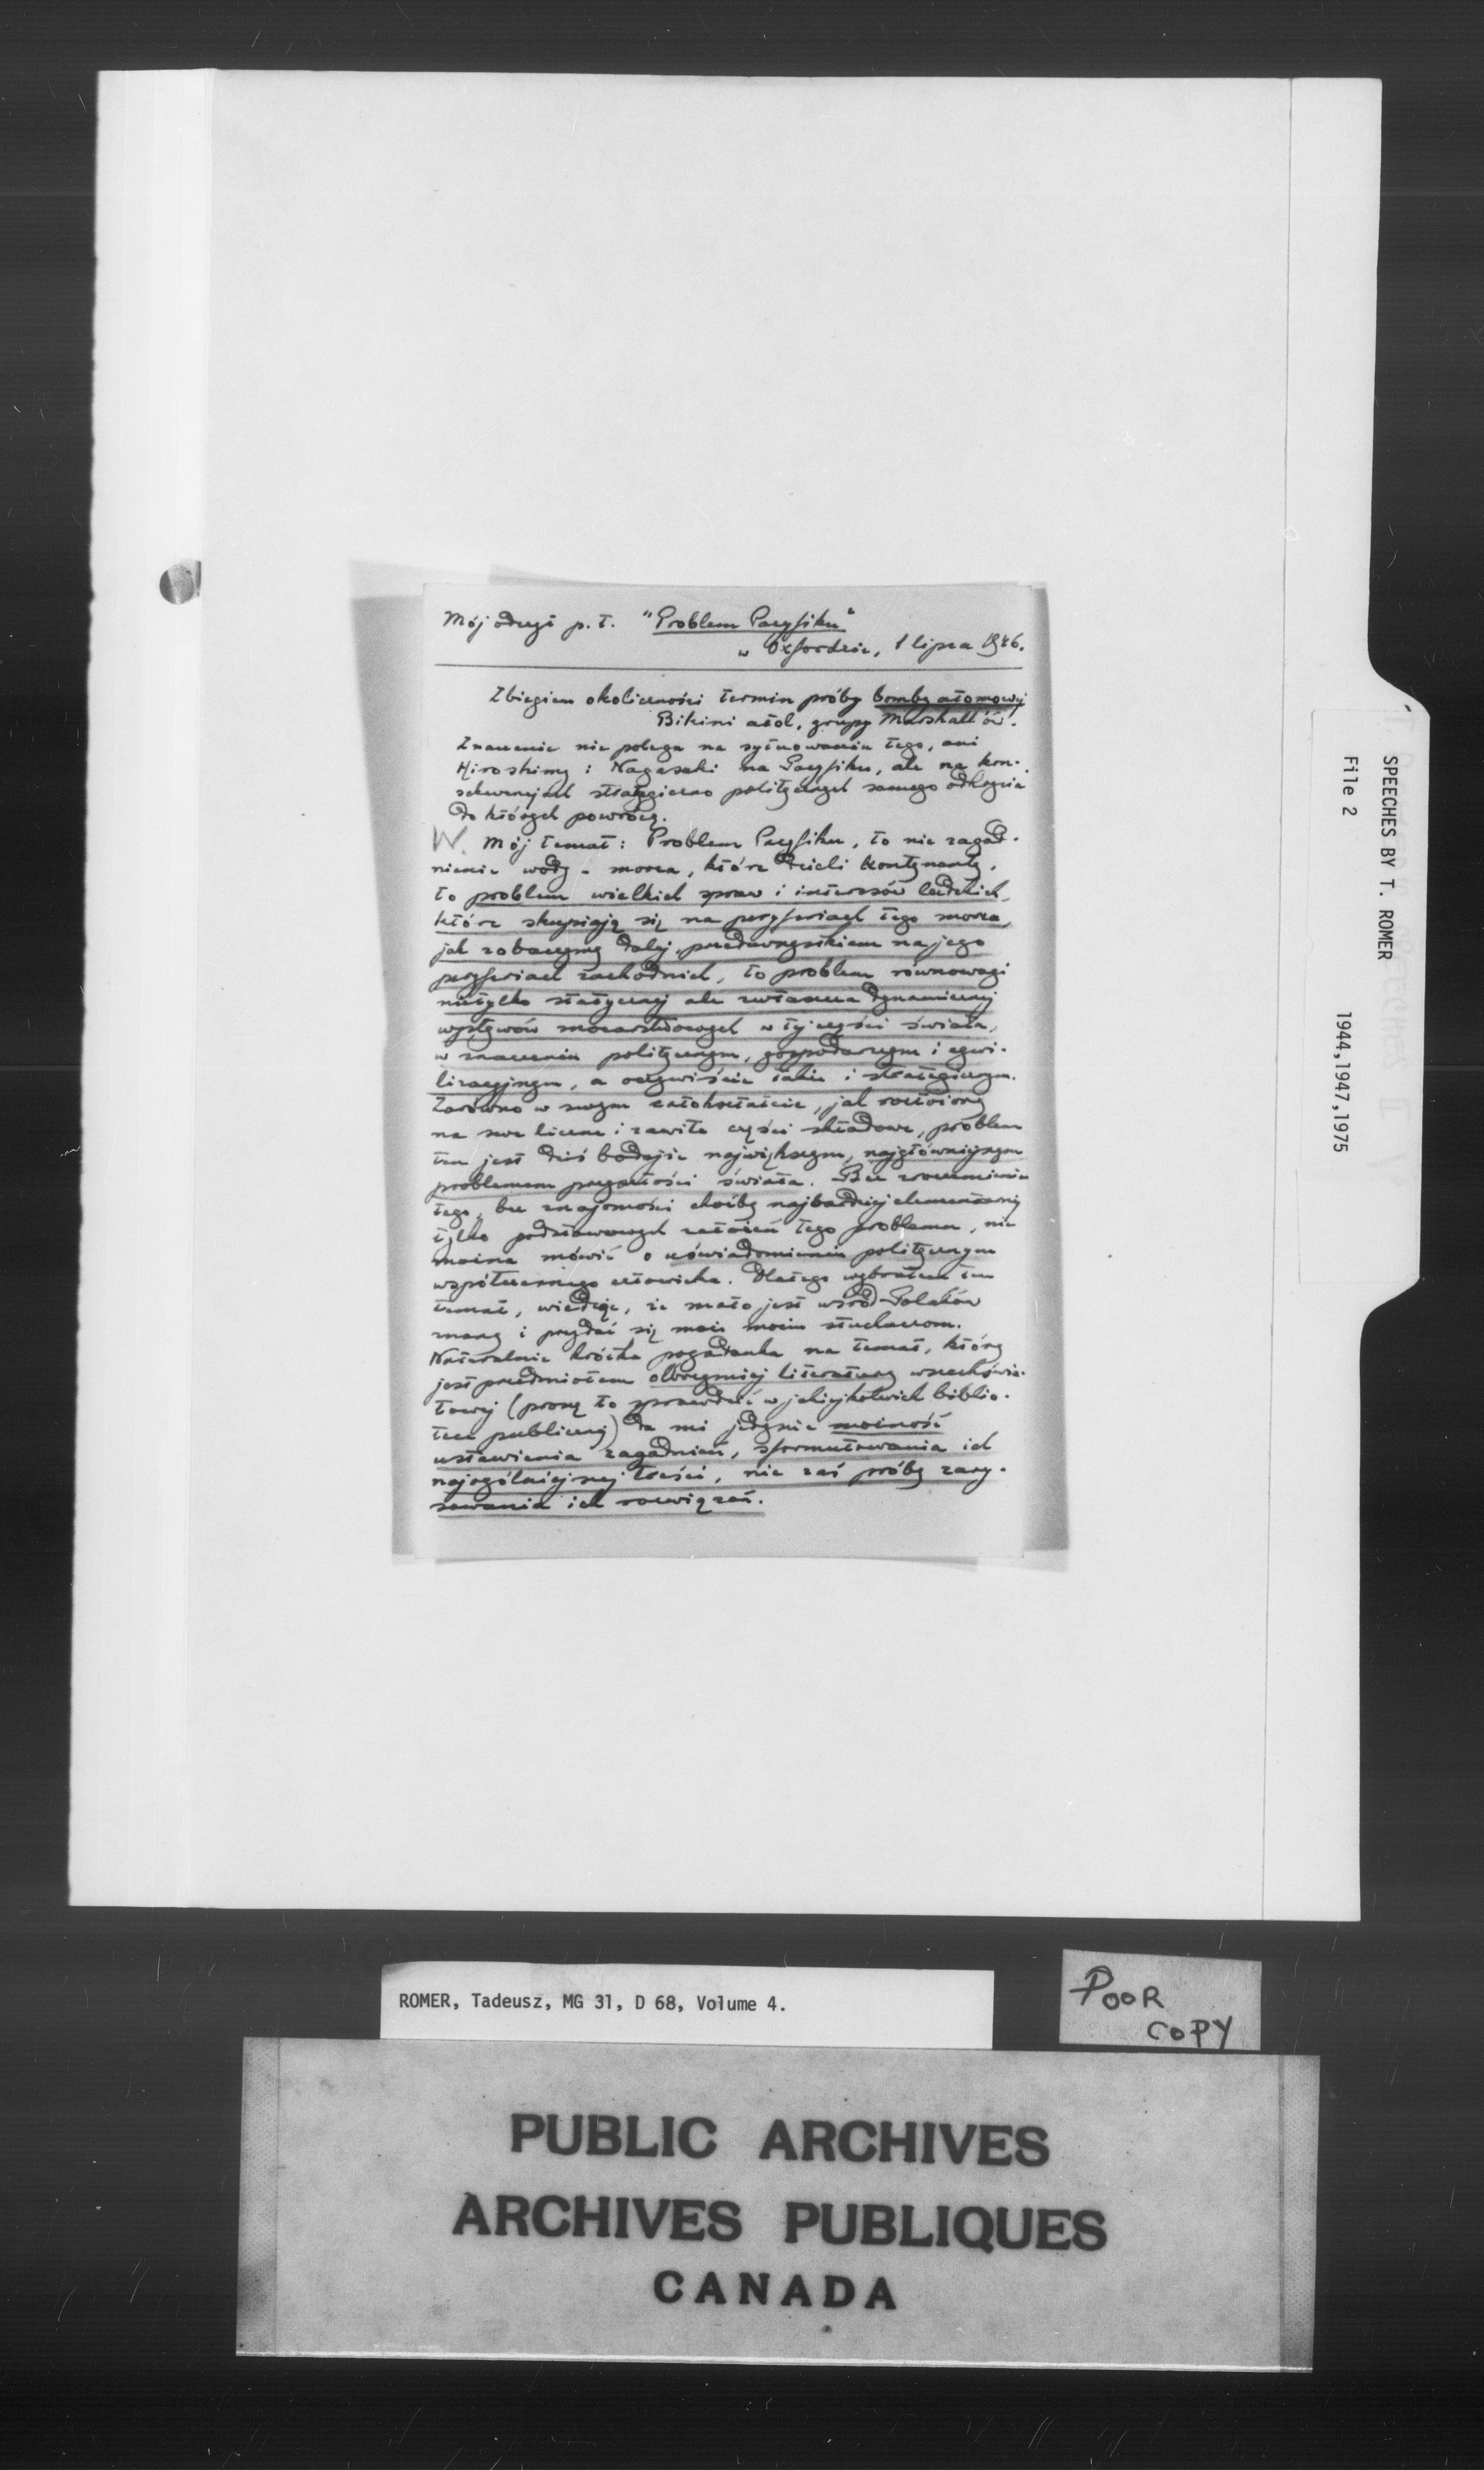 Mój odczyt p.t. "Problem Pacyfiku"
w Oxfordzie, 1 lipca 1946.
Zbiegiem okoliczności termin próby bomby atomowej
Bikini atol, grupy Marshall'ów.
Znaczenie nie polega na sytuowaniu tego, ani
Hiroshimy i Nagasaki na Pacyfiku, ale na kon-
sekwencjach strategiczno politycznych samego odkrycia
do których powrócę.
W. Mój temat: Problem Pacyfiku, to nie zagad-
nienie wody - morza, które dzieli kontynenty,
to problem wielkich spraw i interesów ludzkich,
które skupiają się na peryferiach tego morza,
jak zobaczymy dalej, przedewszystkiem na jego
peryferiach zachodnich, to problem równowagi
nietylko statycznej ale zwłaszcza dynamicznej
wpływów mocarstwowych w tej części świata,
w znaczeniu politycznym, gospodarczym i cywi-
lizacyjnym, a oczywiście także i strategicznym.
Zarówno w swym całokształcie, jak rozłożony
na swe liczne i zawiłe części składowe, problem
ten jest dziś bodajże największym, najgłówniejszym
problemem przyszłości świata. Bez zrozumienia
tego, bez znajomości choćby najbardziej elementarnej
tylko podstawowych założeń tego problemu, nie
można mówić o uświadomieniu politycznym
współczesnego człowieka. Dlatego wybrałem ten
temat, wiedząc, że mało jest wśród Polaków
znany i przydać się może moim słuchaczom.
Naturalnie krótka pogadanka na temat, który
jest przedmiotem olbrzymiej literatury wszechświa-
towej (proszę to sprawdzić w jakiejkolwiek biblio-
tece publicznej) da mi jedynie możność
ustawienia zagadnień, sformułowania ich
najogólniejszej treści, nie zaś próby zary-
sowania ich rozwiązań.
SPEECHES BY T. ROMER
File 2 1944,1947,1975
ROMER, Tadeusz, MG 31, D 68, Volume 4.
POOR
COPY
PUBLIC ARCHIVES
ARCHIVES PUBLIQUES
CANADA